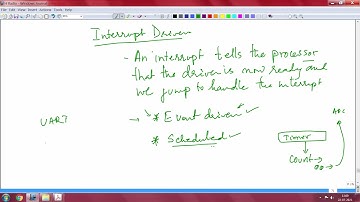 Interrupt Driven
- An interrupt tells the processor
that the driver is now ready and
we jump to handle the interrupt
UART
* Event driven ✓
* Scheduled ✓
Timer
Count